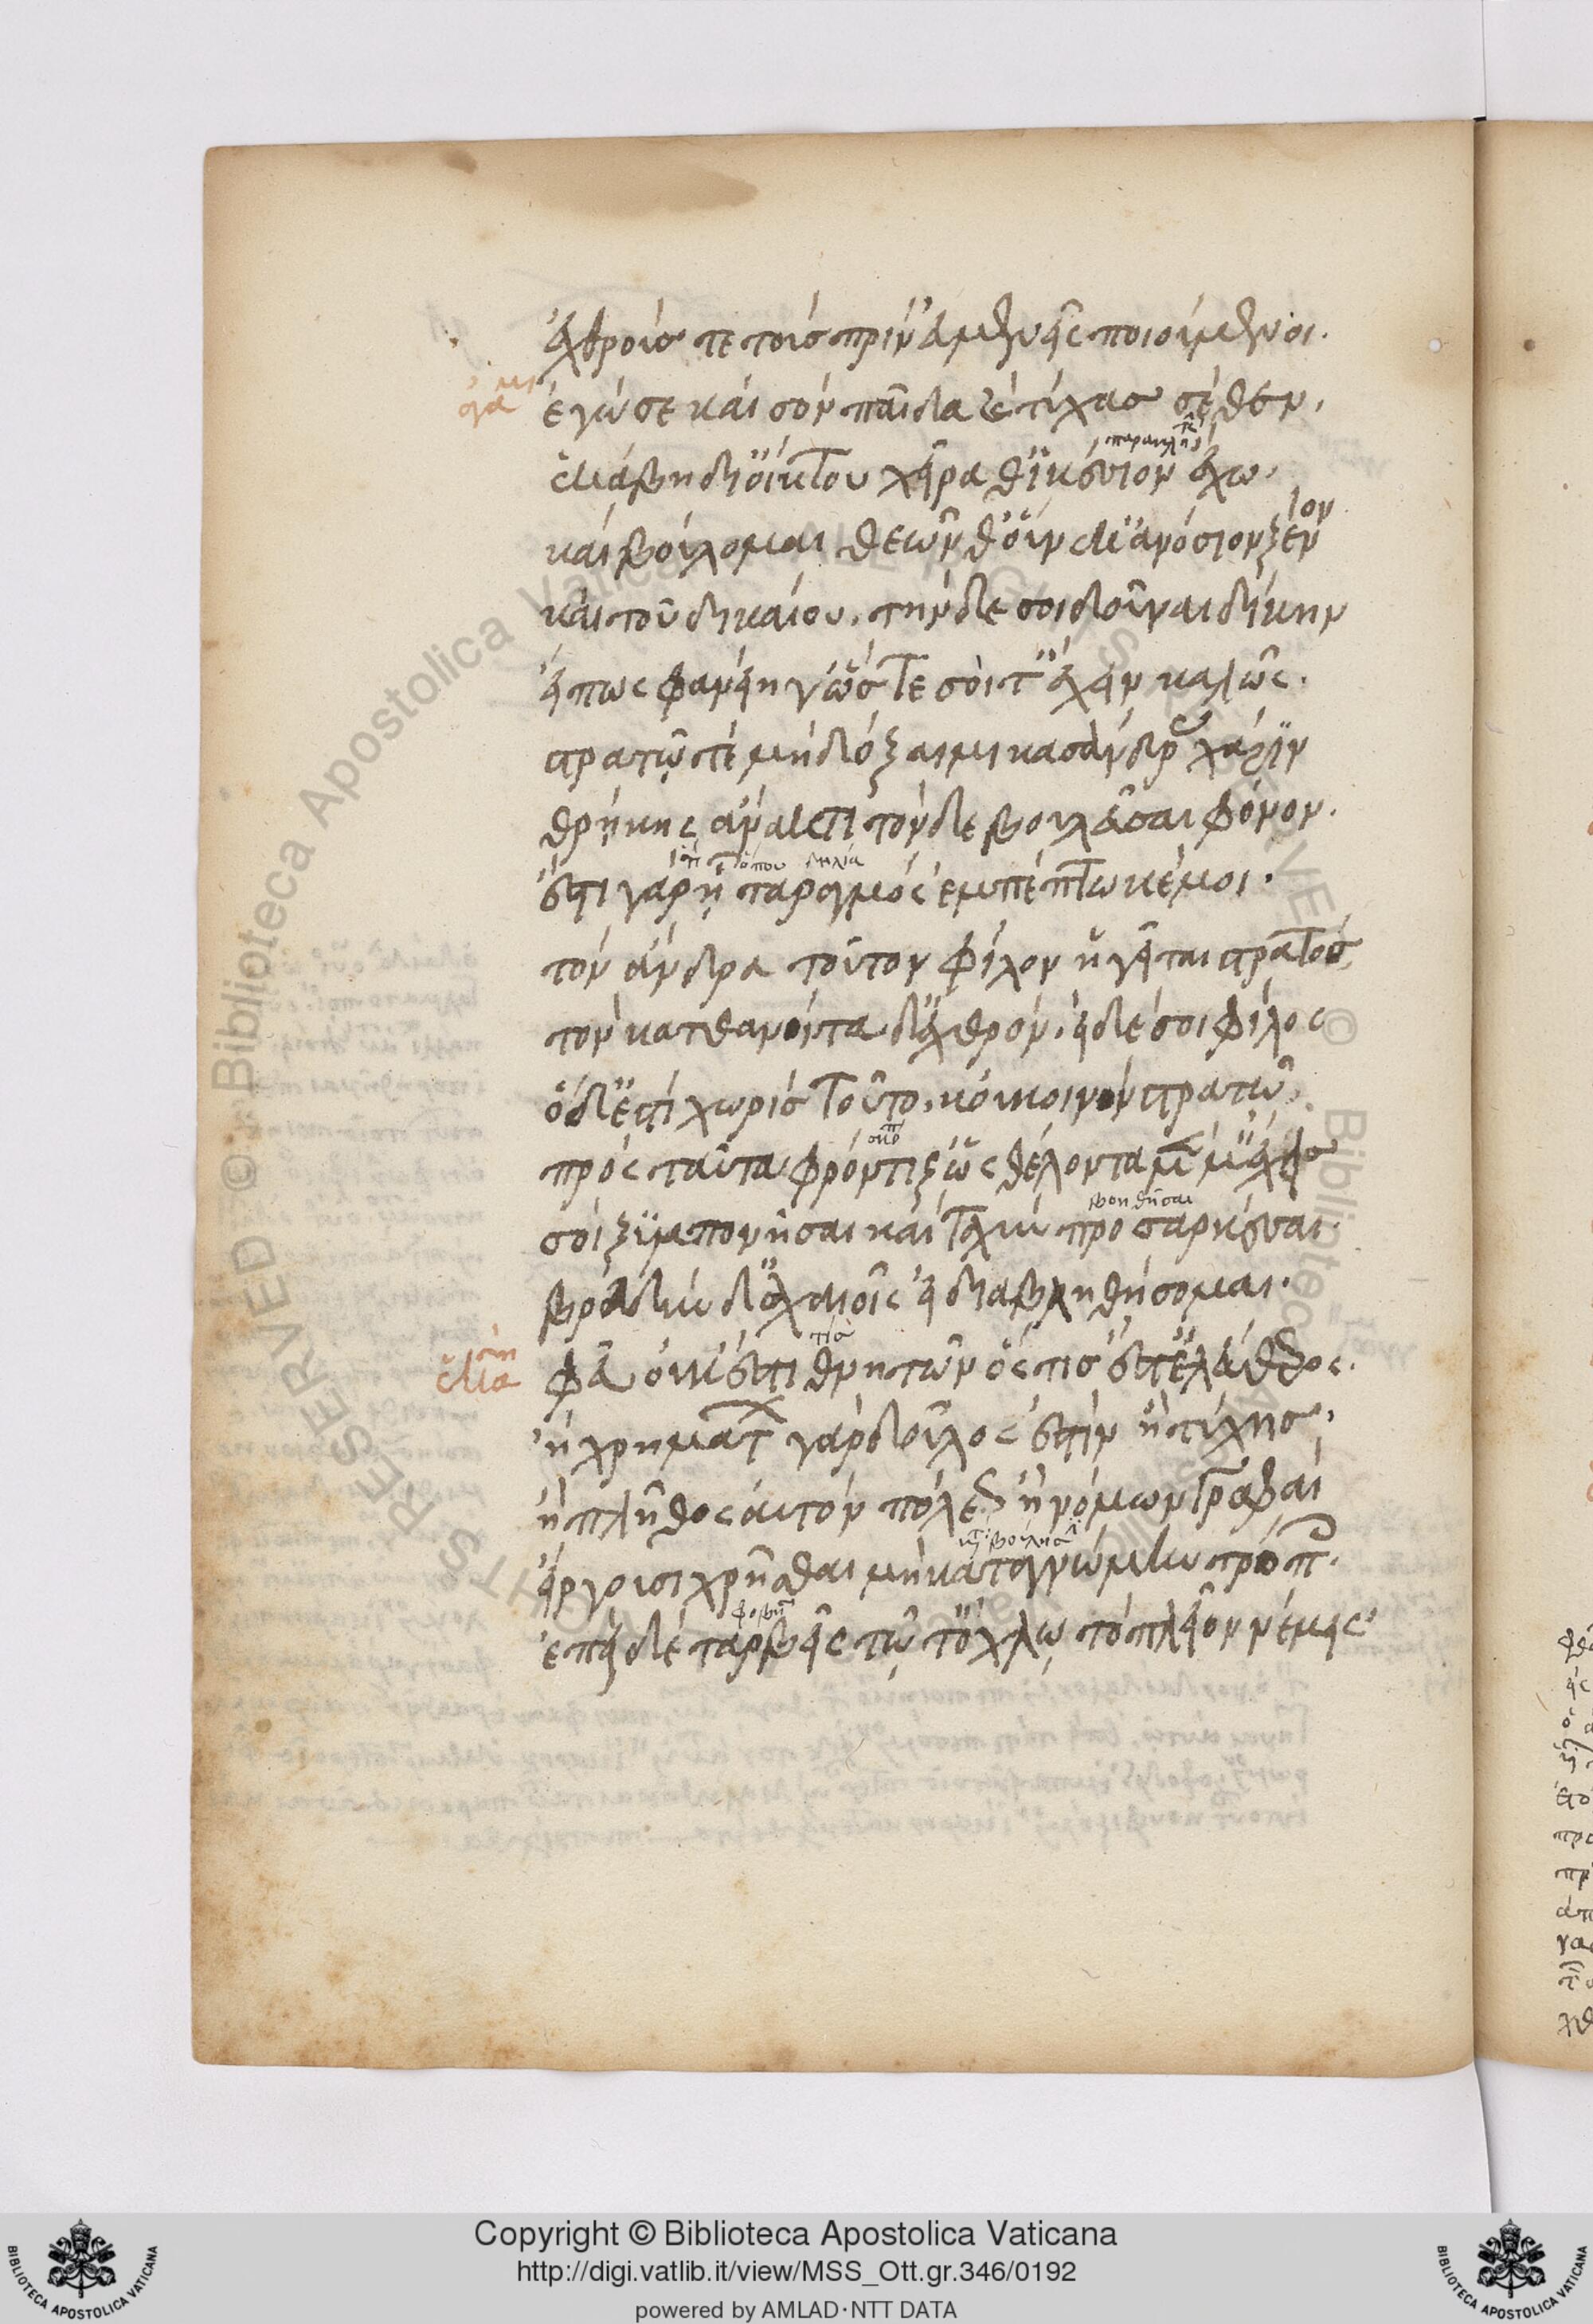 ἐχθρούς τε τοὺς πρὶν εὐμενεῖς ποιούμενοι.
αγα
ἐγώ σε καὶ σὸν παῖδα καὶ τύχας σέθεν,
ἑκάβη δι' οἴκτου χεῖρά θ' ἱκεσίαν ἔχω,
καὶ βούλομαι θεῶν θ' οὕνεκ' ἀνόσιον ξένον
καὶ τοῦ δικαίου, τήνδε σοι δοῦναι δίκην
εἴ πως φανείη γ' ὥστε σοί τ' ἔχειν καλῶς.
στρατῷ τε μὴ δόξαιμι κασάνδρας χάριν
θρήκης ἄνακτι τόνδε βουλεῦσαι φόνον.
ἔστι γὰρ ᾗ ταραγμὸς ἐμπέπτωκέ μοι.
τὸν ἄνδρα τοῦτον φίλον ἡγεῖται στρατός,
τὸν κατθανόντα δ' ἐχθρόν. εἰ δὲ σοὶ φίλος
ὅδ' ἐστὶ χωρὶς τοῦτο, κοὐ κοινὸν στρατῷ.
πρὸς ταῦτα φρόντιζ' ὡς θέλοντα μέν μ' ἔχεις
βοηθῆσαι
σοὶ ξυμπονῆσαι καὶ ταχὺν προσαρκέσαι.
βραδὺν δ' ἀχαιοῖς εἰ διαβληθήσομαι.
ἑκα
φεῦ οὐκ ἔστι θνητῶν ὅστις ἔστ' ἐλεύθερος.
ἢ χρημάτων γὰρ δοῦλός ἐστιν ἢ τύχης,
ἢ πλῆθος αὐτὸν πόλεως ἢ νόμων γραφαὶ
εἴργουσι χρῆσθαι μὴ κατὰ γνώμην τρόποις.
ἐπεὶ δὲ ταρβεῖς τῷ τ' ὄχλῳ τὸ πλεῖον νέμεις
Copyright © Biblioteca Apostolica Vaticana
http://digi.vatlib.it/view/MSS_Ott.gr.346/0192
powered by AMLAD·NTT DATA
BIBLIOTECA APOSTOLICA VATICANA
BIBLIOTECA APOSTOLICA VATICANA